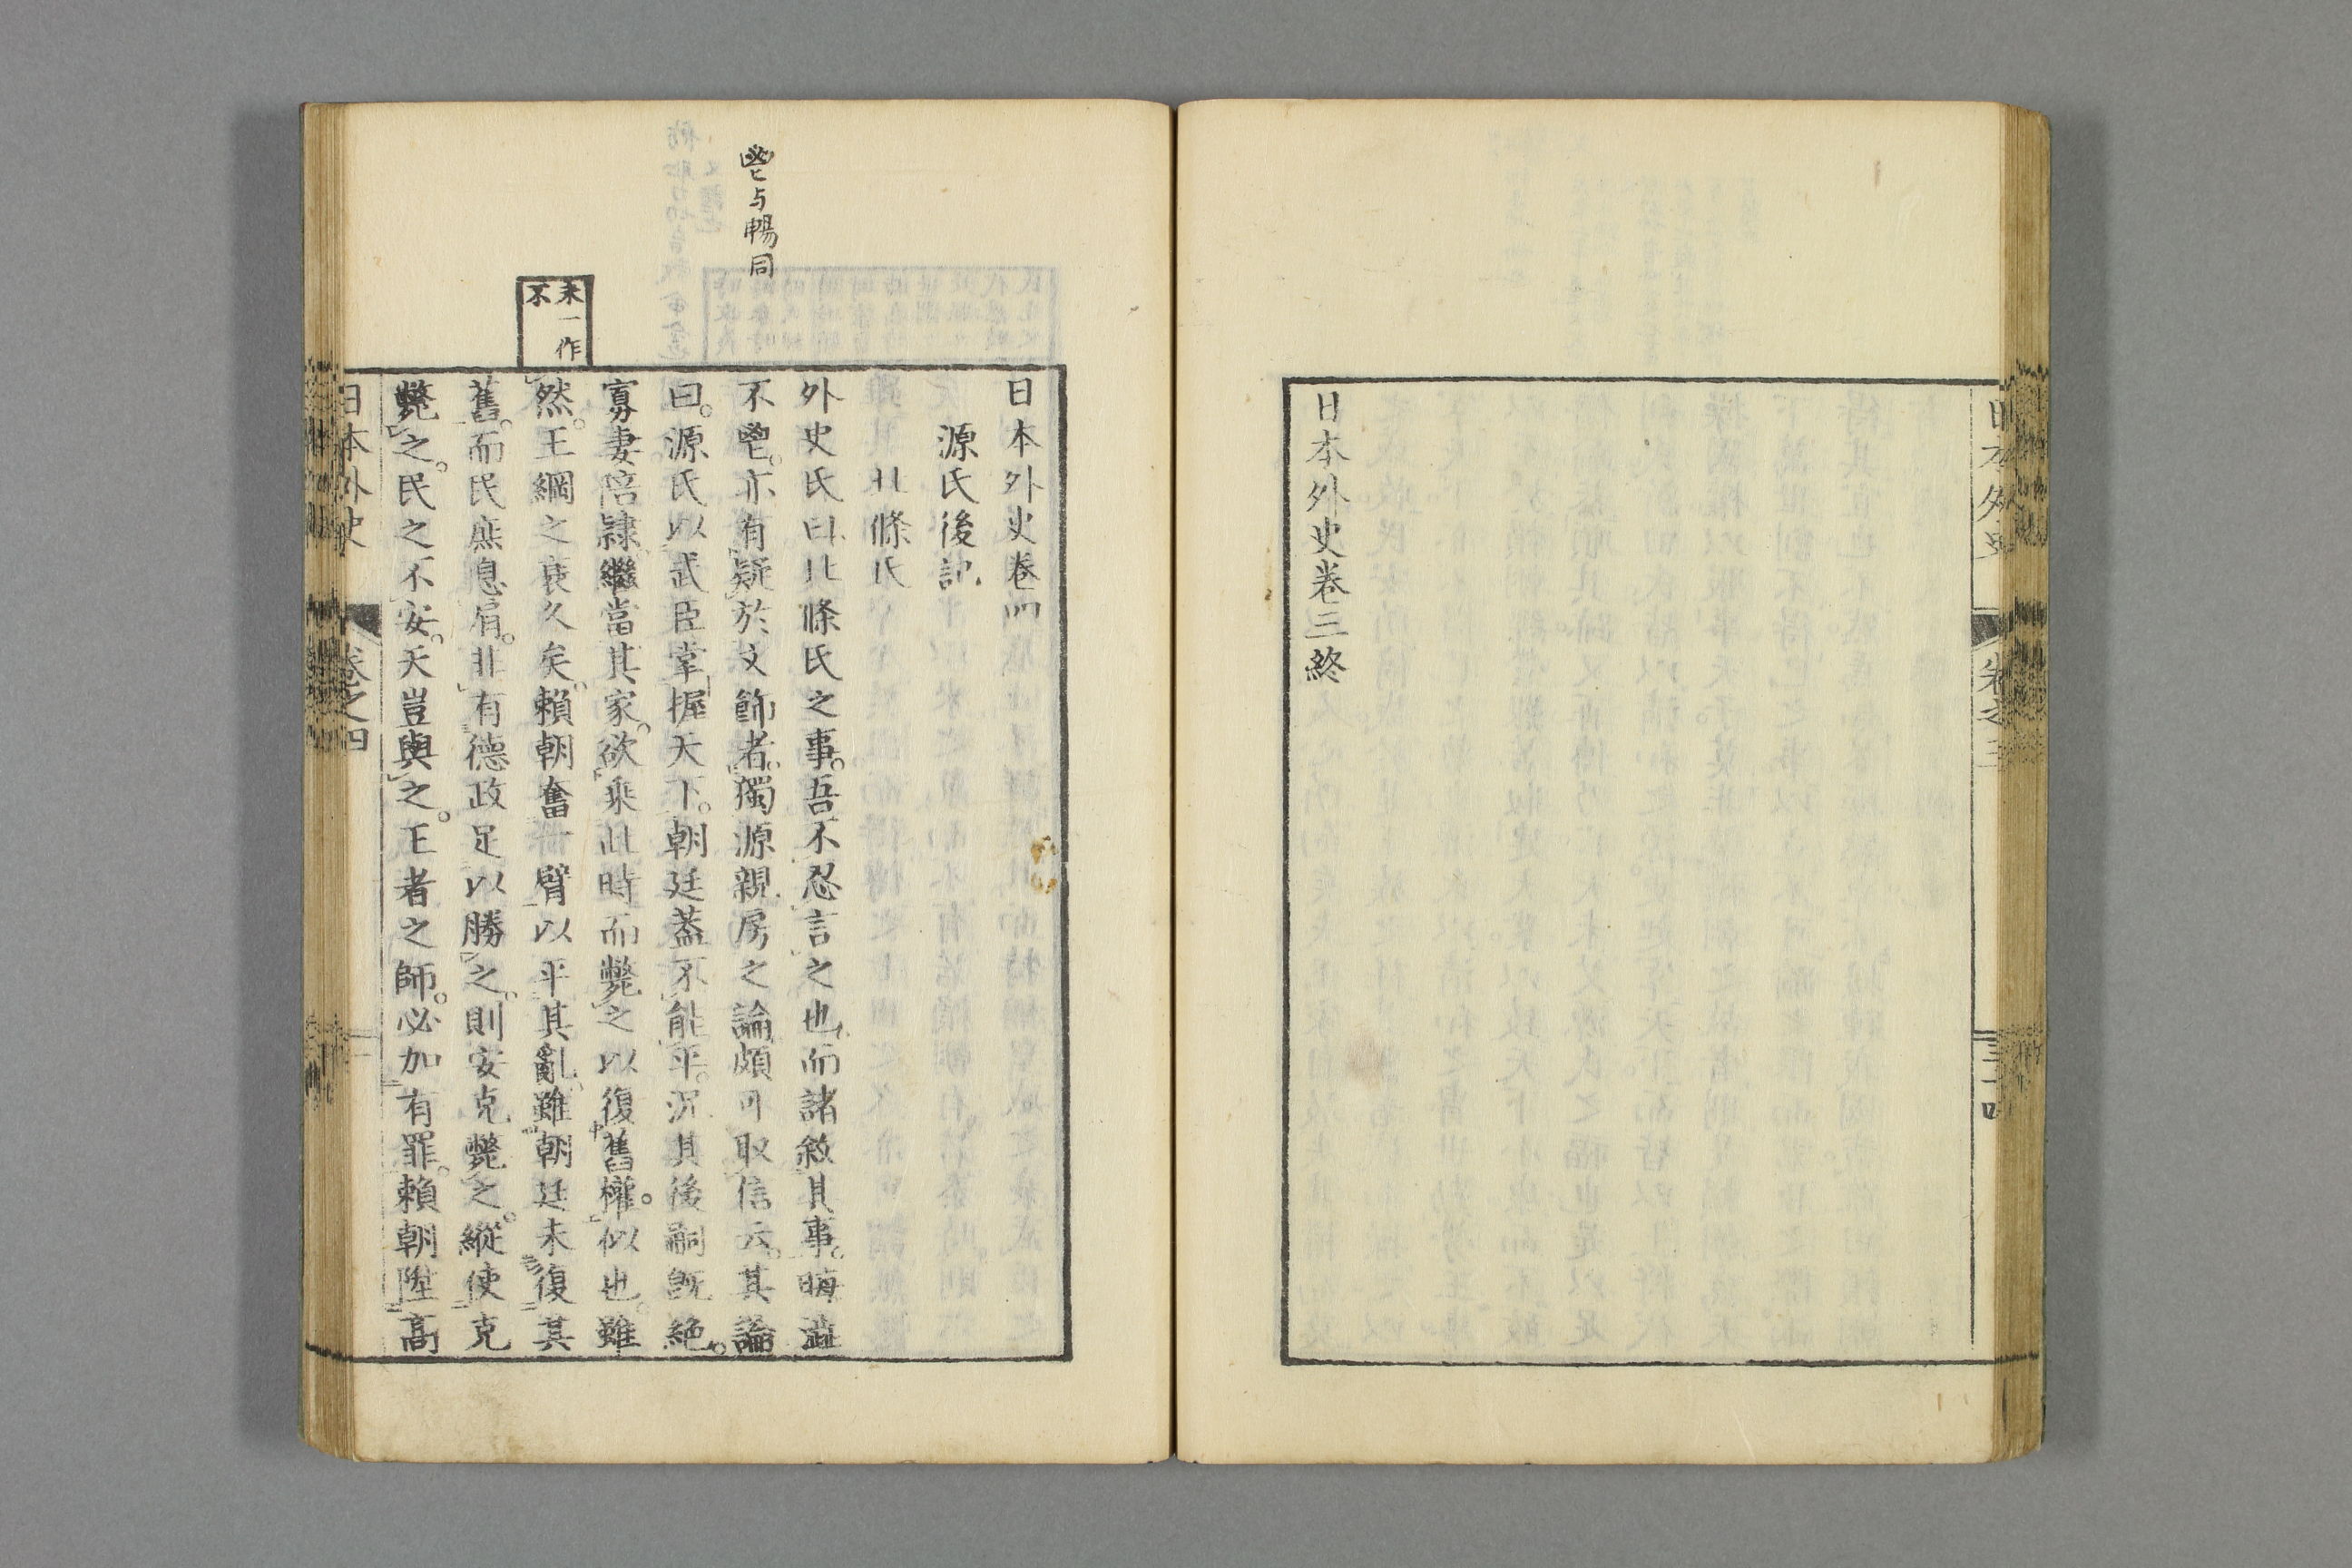 日本外史
卷之三
三十四
日本外史卷三終
鬯与暢同
未一作
不
日本外史卷四
源氏後記
北條氏
外史氏曰北條氏之事。吾不忍言之也而諸敘其事。晦澁
不鬯。亦有疑於文飾者。獨源親房之論頗可取信云。其論
曰。源氏以武臣掌握天下。朝廷蓋不能平。況其後嗣既絶。
寡妻陪隷繼當其家。欲乘此時而斃之以復舊權。似也。雖
然。王綱之衰久矣。賴朝奮一臂以平其亂。雖朝廷未復其
舊。而民庶息肩。非有德政足以勝之。則安克斃之。縱使克
斃之。民之不安。天豈與之。王者之師。必加有罪。賴朝陞高
日本外史
卷之四